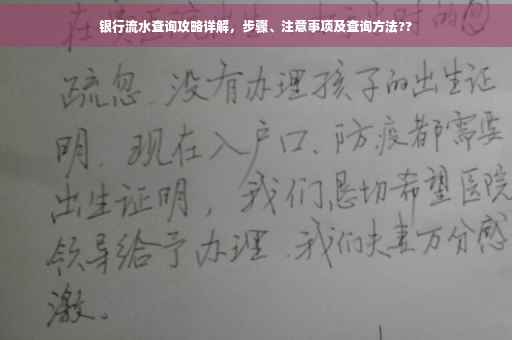 银行流水查询攻略详解，步骤、注意事项及查询方法??
疏忽.没有办理孩子的出生证
明.现在入户口、防疫都需要
出生证明，我们恳切希望医院
领导给予办理.我们夫妻万分感
激。